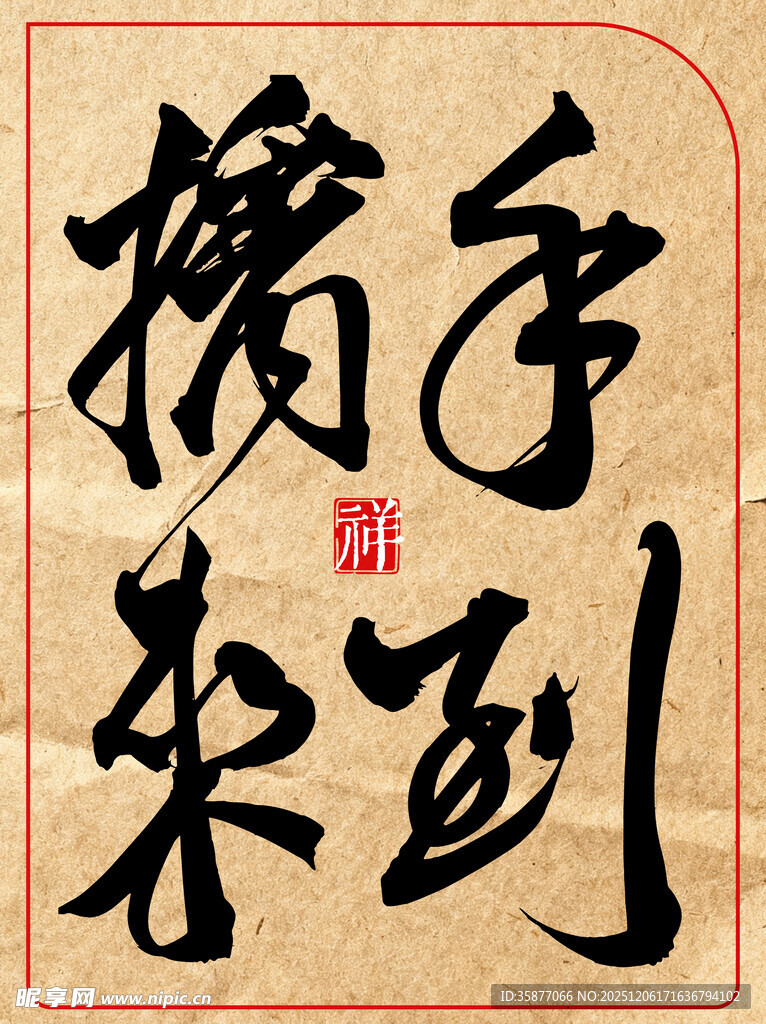 携手
祥
来到
昵享网 www.nipic.cn
ID:35877066 NO:20251206171636794102